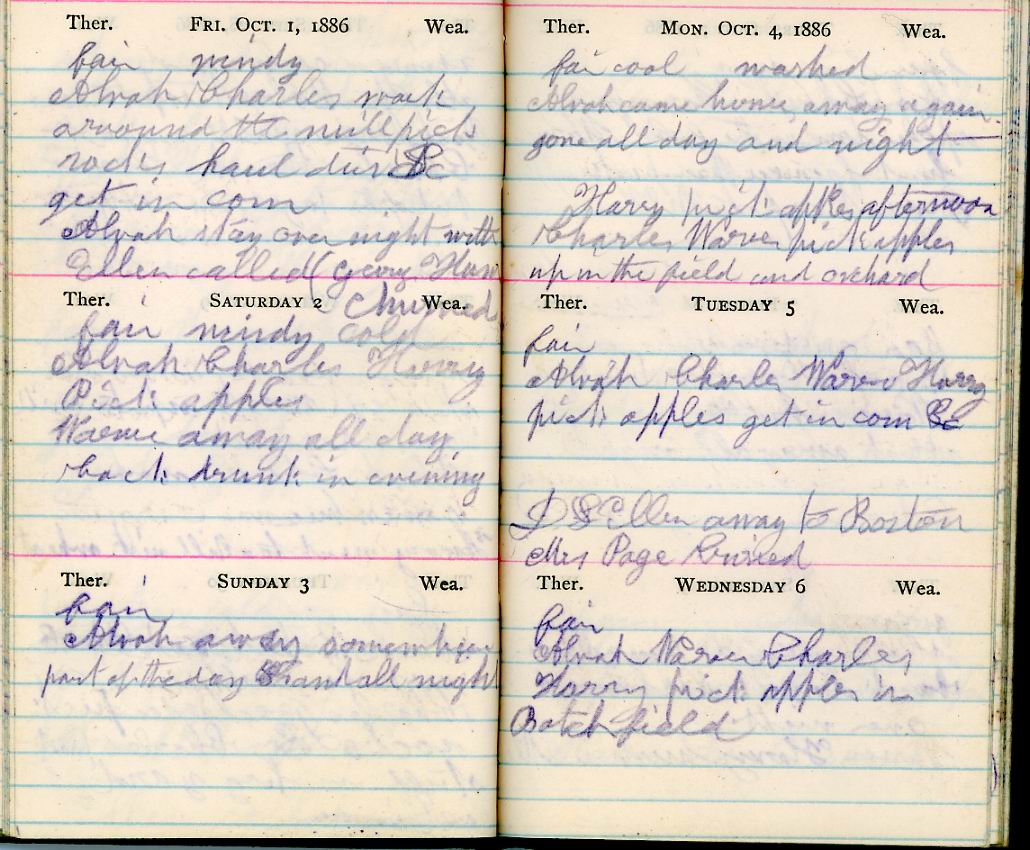 Ther. FRI. OCT. 1, 1886 Wea.
fair windy
Alvah Charles work
around the mill pick
rocks haul &c
get in corn
Alvah stay over night with
Ellen called (George
Ther. SATURDAY 2 Wea.
churned
fair windy cold
Alvah Charles Harry
Pick apples
away all day
back drunk in evening
Ther. SUNDAY 3 Wea.
fair
Alvah away somewhere
part of the day and all night
Ther. MON. OCT. 4, 1886 Wea.
fair cool washed
Alvah came home away again
gone all day and night
Harry pick apples afternoon
Charles Warren pick apples
up in the field and orchard
Ther. TUESDAY 5 Wea.
fair
Alvah Charles Warren Harry
pick apples get in corn &c
Ellen away to Boston
Mrs Page buried
Ther. WEDNESDAY 6 Wea.
fair
Alvah Warren Charles
Harry pick apples in
field